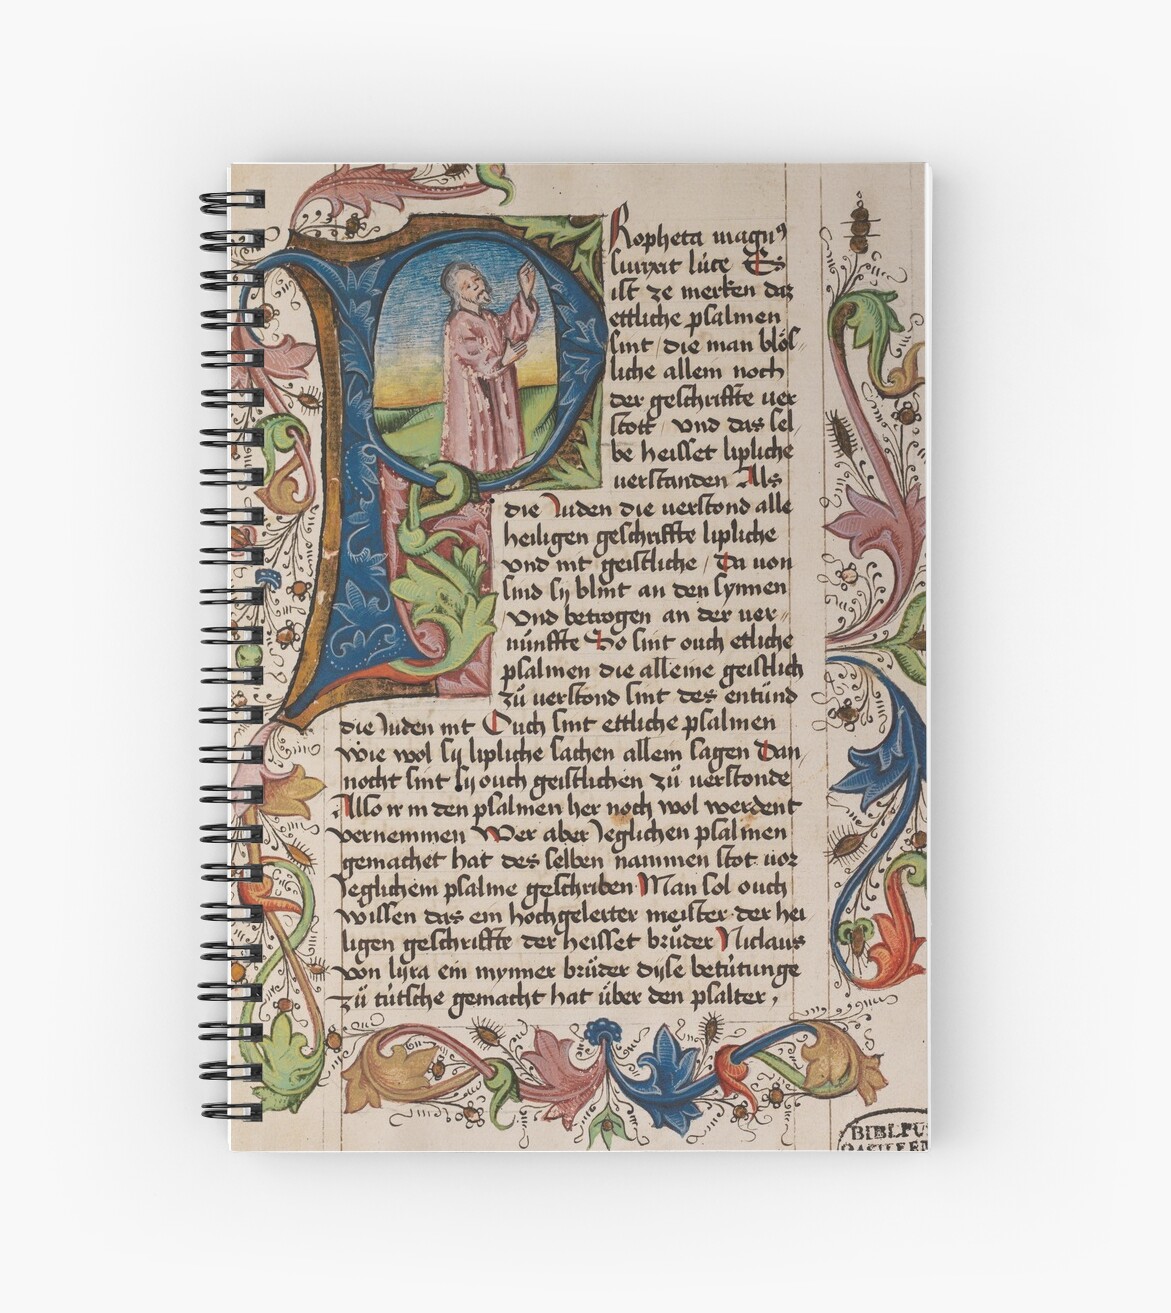 Propheta magnus
surrexit luce Es
ist ze merken daz
ettliche psalmen
sint die man blös
liche allein noch
der geschrifft ver
stott vnd das sel
be heisset lipliche
verstanden Als
die Juden die verstond alle
heiligen geschriffte lipliche
vnd nit geistliche / Da von
sind sy blint an den synnen
vnd betrogen an der ver
nünffte So sint ouch etliche
psalmen die alleine geistlich
zü verstond sint des entünd
die Juden nit Ouch sint ettliche psalmen
wie wol sy lipliche sachen allein sagen Dan
nocht sint sy ouch geistlichen zü verstonde
Also ir in den psalmen her noch wol werdent
vernemmen Wer aber Jeglichen psalmen
gemachet hat des selben nammen stot vor
Jeglichem psalme geschriben Man sol ouch
wissen das ein hochgelerter meister der hei
ligen geschrifft der heisset brüder Niclaus
von lyra ein mynner brüder dyse betütunge
zü tütsche gemacht hat über den psalter ,
BIBL. PU
BASILEEN